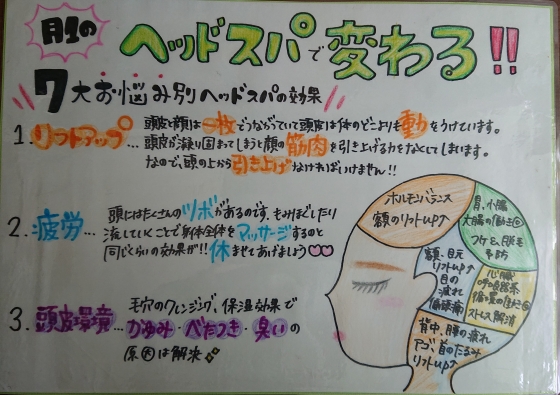 月1の
ヘッドスパで変わる!!
7大お悩み別ヘッドスパの効果
1. リフトアップ… 頭皮と顔は一枚でつながっていて頭皮は体のどこよりも重力をうけています。
頭皮が凝り固まってしまうと顔の筋肉を引き上げる力をなくしてしまいます。
なので、頭の上から引き上げなければいけません!!
2. 疲労… 頭にはたくさんのツボがあるのです。もみほぐしたり
流していくことで身体全体をマッサージするのと
同じくらいの効果が!! 休ませてあげましょう
3. 頭皮環境… 毛穴のクレンジング、保湿効果で
かゆみ・べたつき・臭いの
原因は解決
ホルモンバランス
額のリフトup↑
胃、小腸
大腸の働き
フケ&脱毛
予防
額、目元
リフトup↑
目の
疲れ
偏頭痛
心臓
呼吸器系
ストレス解消
背中、腰の疲れ
アゴ、首のたるみ
リフトup↑